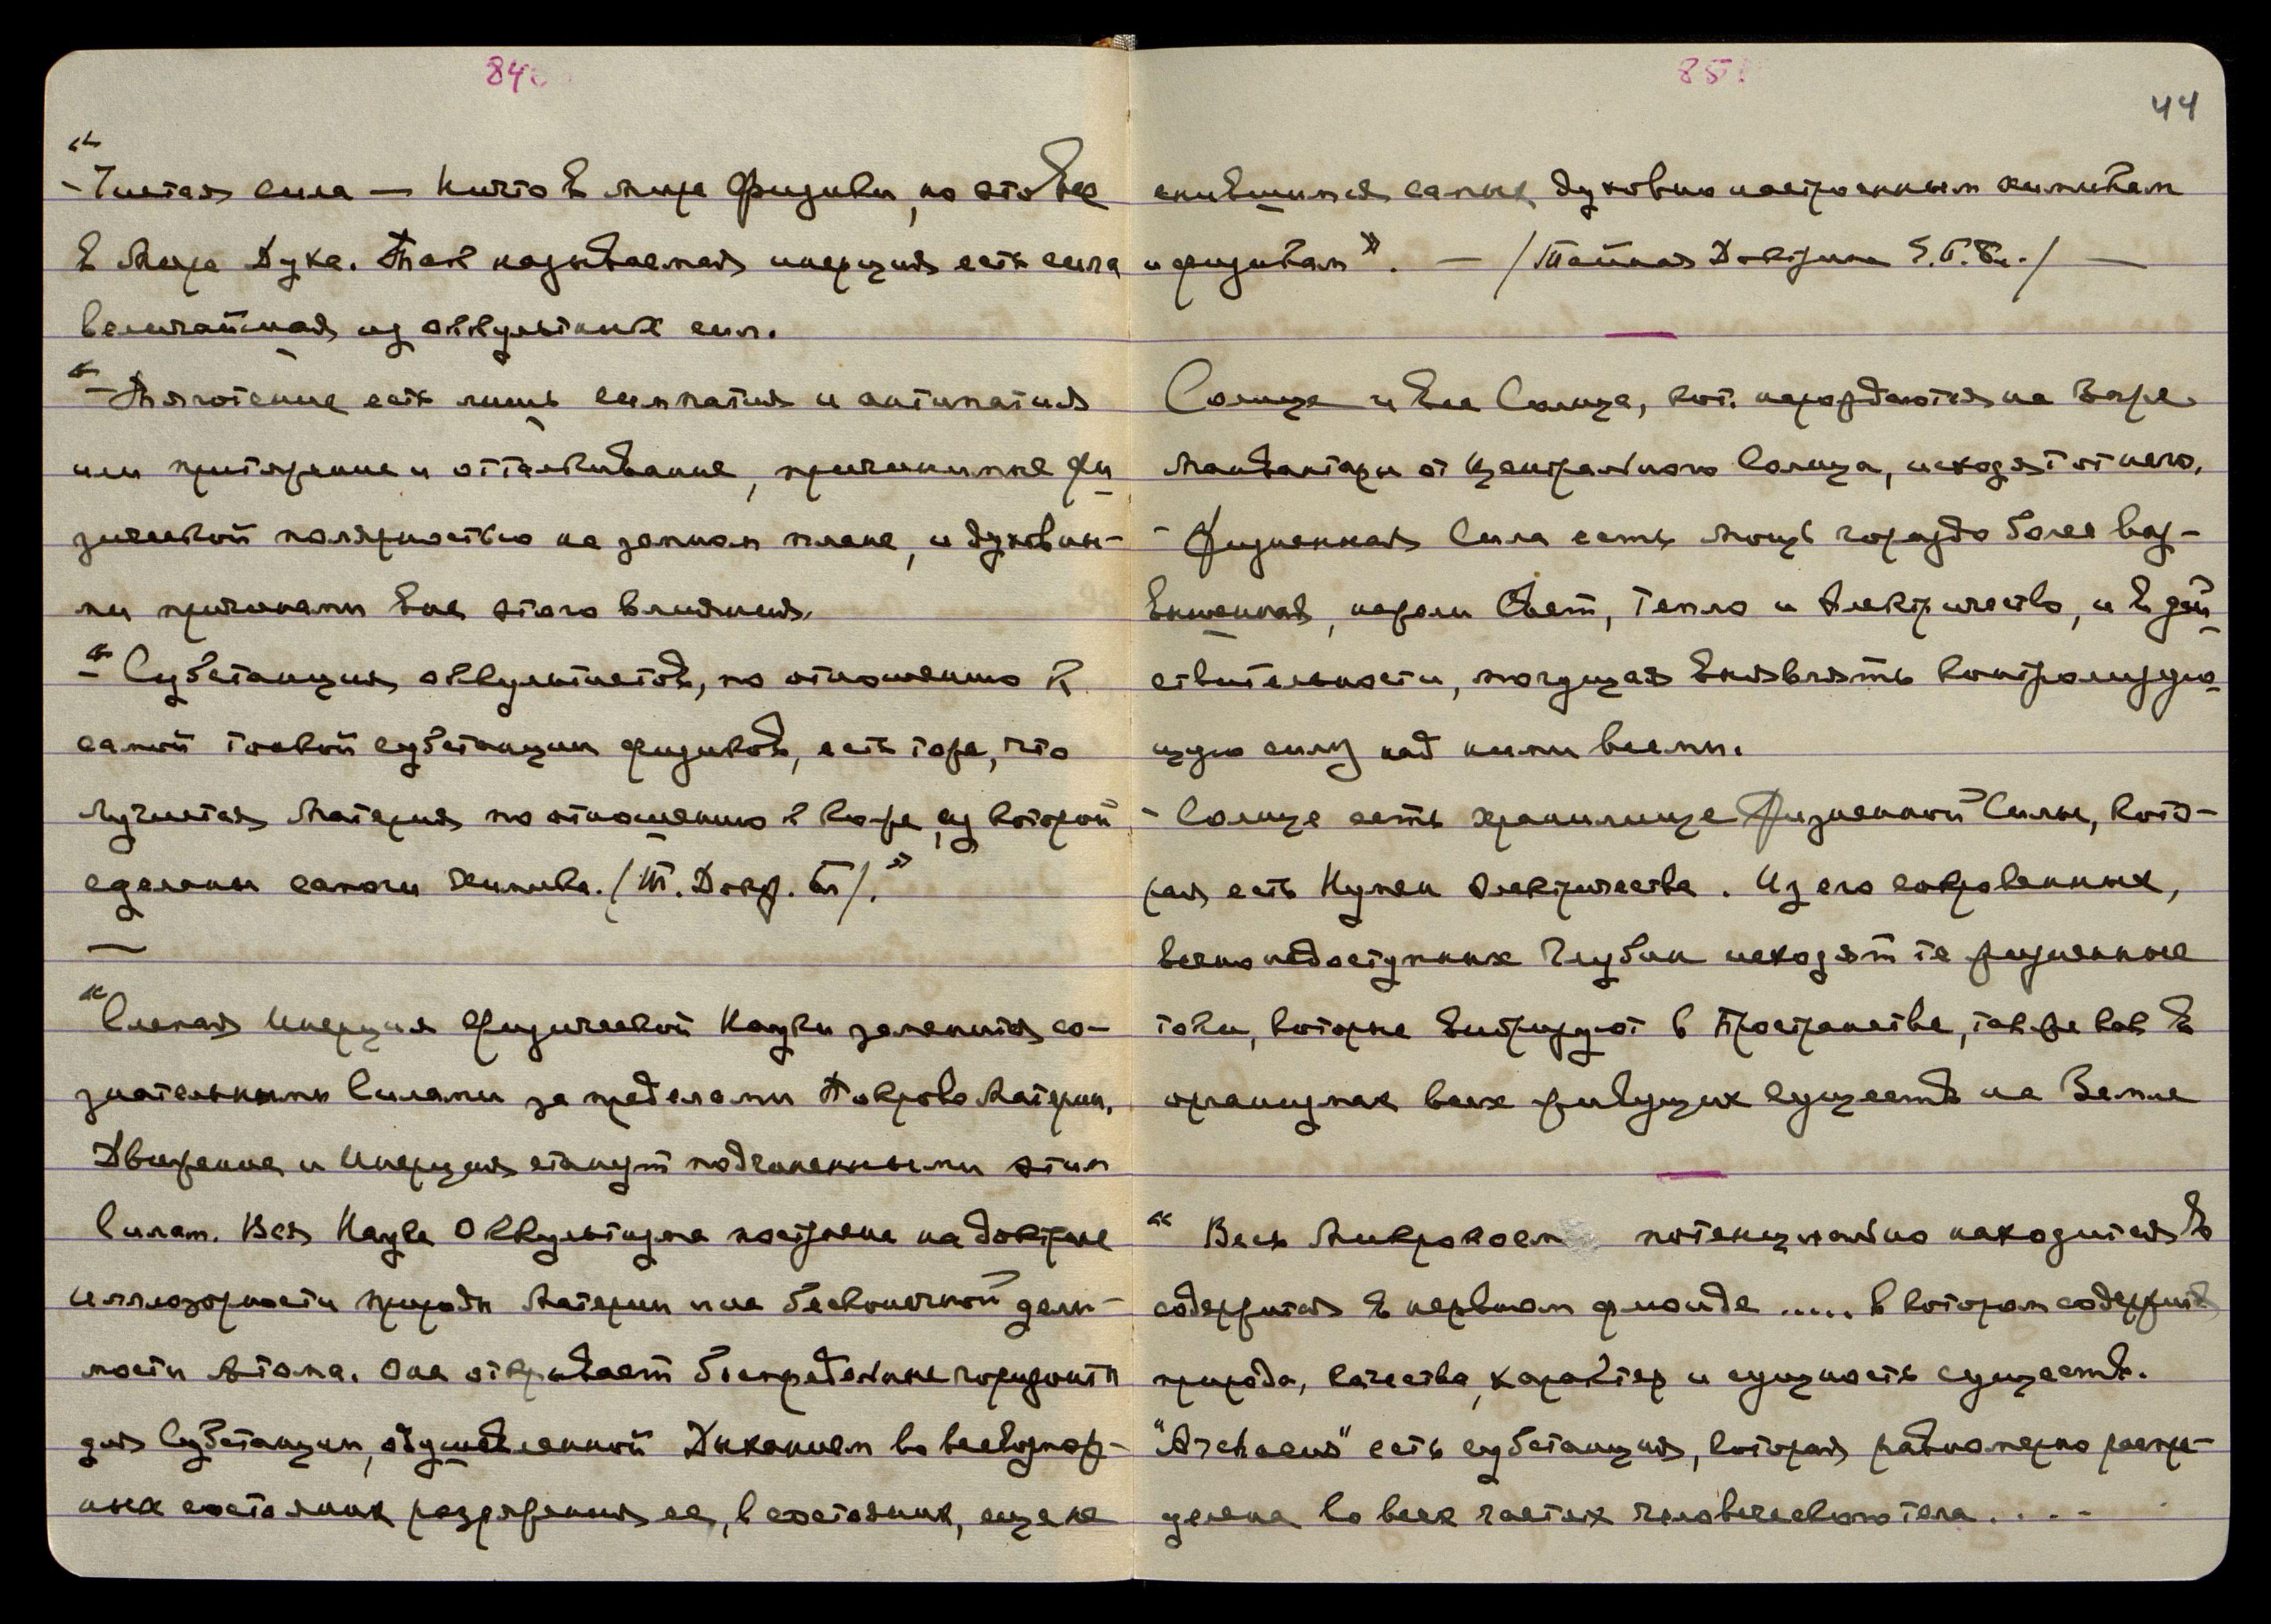 84
"
- Чистая сила — Ничто в мире Физики, но это Все
в Мире Духа. Так называемая инерция есть сила
величайшая из оккультных сил.
"- Тяготение есть лишь симпатия и антипатия
или притяжение и отталкивание, причиненные фи-
зической полярностью на земном плане, и духовны-
ми причинами вне этого влияния.
"- Субстанция оккультистов, по отношению к
самой тонкой субстанции физиков, есть то же, что
Лучистая Материя по отношению к коже, из которой
сделаны сапоги химика. /Т. Докт. /."
—
"Слепая Инерция Физической Науки заменится со-
знательными Силами за пределами Покрова Материи.
Движение и Инерция станут подчиненными этим
Силам. Вся Наука Оккультизма построена на доктрине
иллюзорности природы Материи и на бесконечной дели-
мости атома. Она открывает беспредельные горизонты
для Субстанции, одушевленной Дыханием во всевозмож-
ных состояниях разряжения ее, в состояниях, еще не
85
44
снившимся самым духовно настроенным химикам
и физикам". — /Тайная Доктрина Е.П.Бл./ —
Солнце и все Солнца, кот. нарождаются на Заре
Манвантары от Центрального Солнца, исходят от него.
- Жизненная Сила есть мощь гораздо более воз-
вышенная, нежели Свет, Тепло и Электричество, и в дей-
ствительности, могущая выявлять контролирую-
щую силу над ними всеми.
- Солнце есть хранилище Жизненной Силы, кото-
рая есть Нумен Электричества. Из его сокровенных,
вечно недоступных глубин исходят те жизненные
токи, которые вибрируют в Пространстве, так же как в
организмах всех живущих существ на Земле
" Весь Микрокосм потенциально находится в
содержится в нервном флюиде ..... в котором содержится
природа, качества, характер и сущность существ.
"Archaeus" есть субстанция, которая равномерно распре-
делена во всех частях человеческого тела . . . -